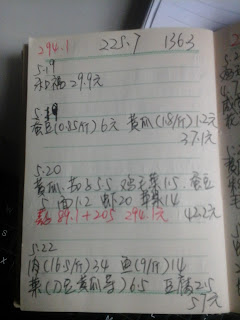 294.1 225.7 1363
5.19
29.9元
蚕豆(0.85/斤)6元 黄瓜(1.8/斤)1.2元
37.1元
5.20
黄瓜.茄 5.5 鸡毛菜1.5. 蚕豆
5 面1.2 虾20 苹菜14
29.1+205 294.1元 42.2元
5.22
肉(16.5/斤)34 鱼(9/斤)14
菜(刀豆黄瓜等)6.5 豆腐2.5
57元